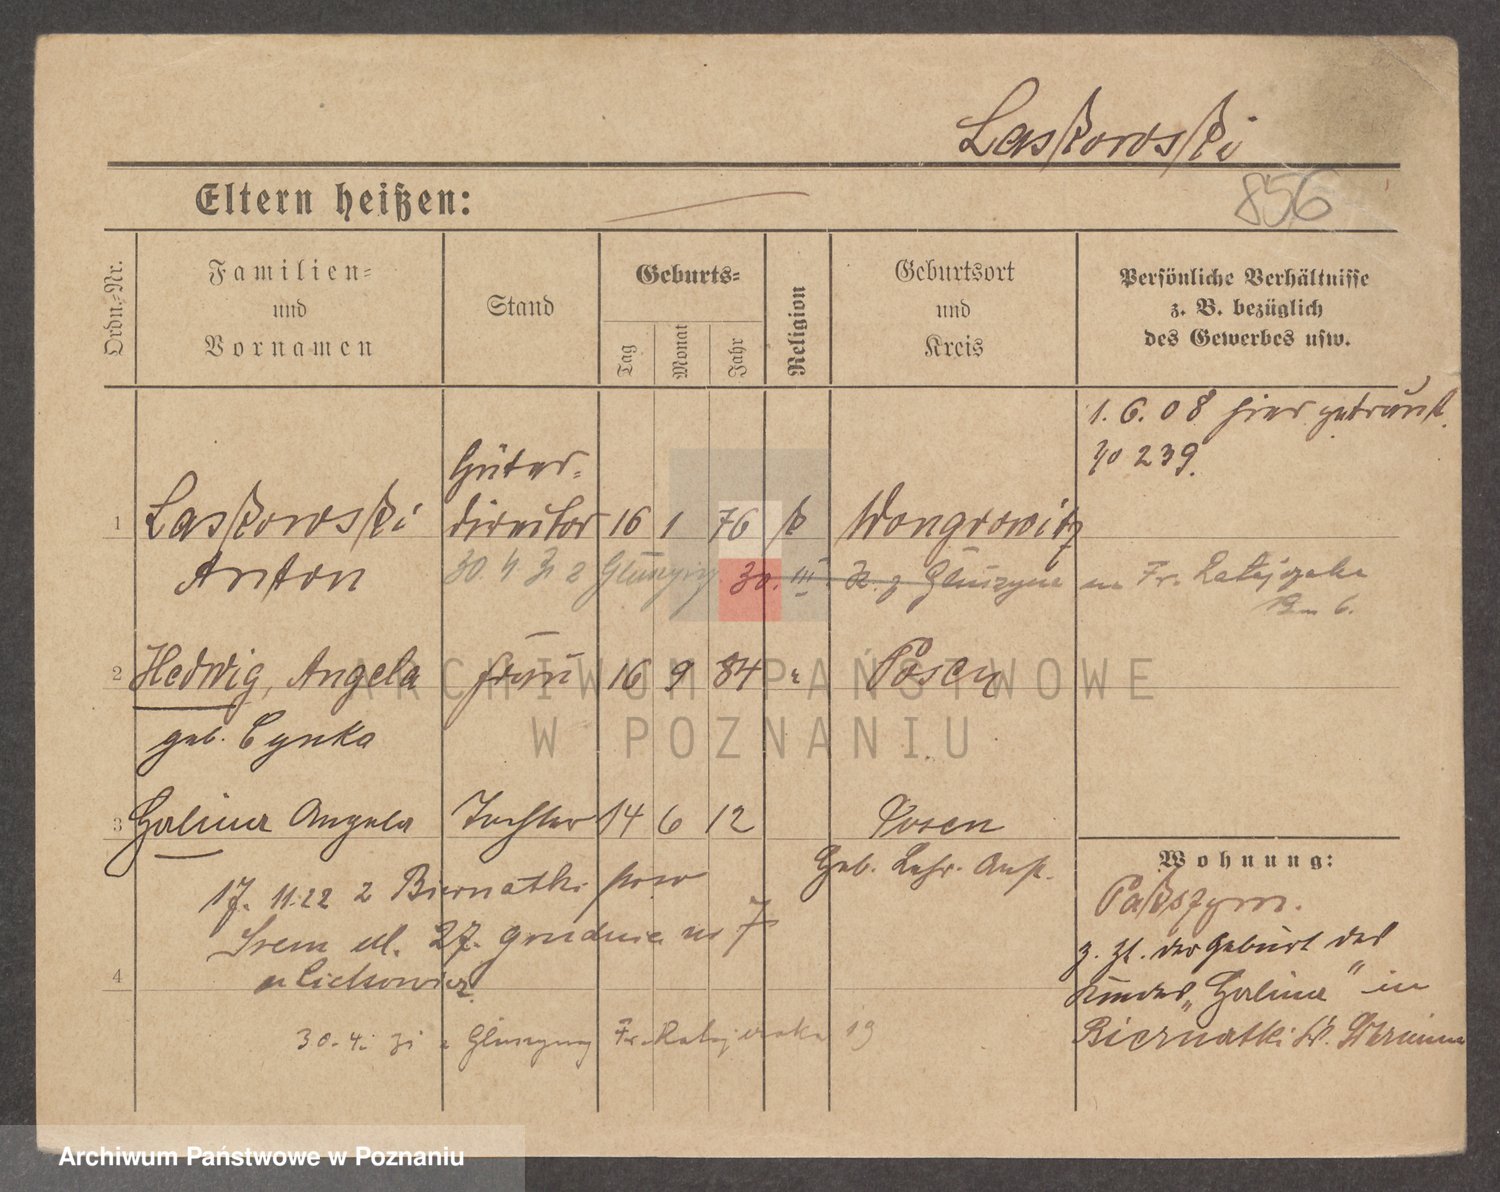 Laskowski
Eltern heißen:
856
Ordn.-Nr.
Familien-
und
Vornamen
Stand
Geburts-
Tag
Monat
Jahr
Religion
Geburtsort
und
Kreis
Persönliche Verhältnisse
z. B. bezüglich
des Gewerbes usw.
1. 6. 08 hier getraut.
No 239.
Güter-
1 Laskowski direktor 16 1 76 k Wongrowitz
Anton
30. 4. Zi z 30. III. Fr. Ratajczaka
2 Hedwig, Angela Frau 16 9 84 " Posen
geb. Cynka
3 Halina Angela Tochter 14 6 12 Posen
Geb. Anst.
Wohnung:
17. 11. 22 z Biernatki pow
Paßszym.
Srem ul. 27. grudnia nr 7
z. Zt. der Geburt des
4
Kindes „Halina" in
30. 4. zi z Gluszyny Fr. Ratajczaka 19
Biernatki Kr. Schrimm
ARCHIWUM PAŃSTWOWE
W POZNANIU
Archiwum Państwowe w Poznaniu